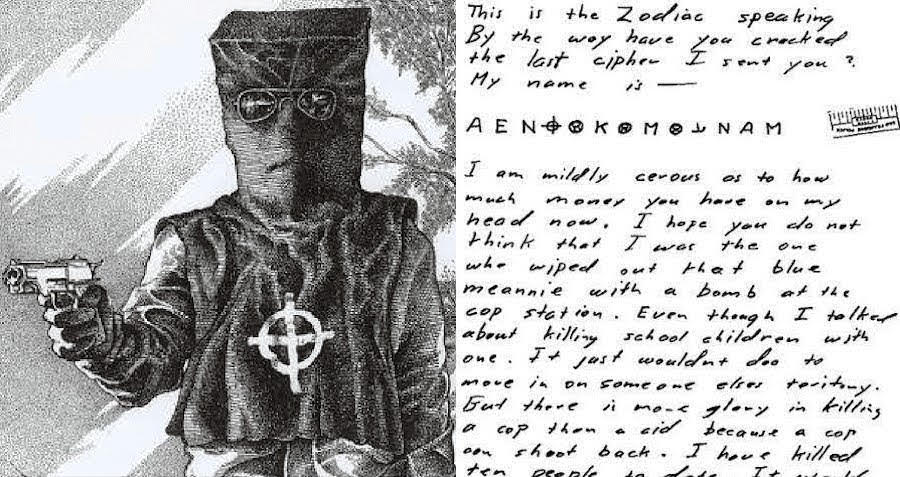 This is the Zodiac speaking
By the way have you cracked
the last cipher I sent you ?
My name is —
A E N ⊕ ⑧ K ⑧ M ⑧ ⊥ N A M
I am mildly cerous as to how
much money you have on my
head now. I hope you do not
think that I was the one
who wiped out that blue
meannie with a bomb at the
cop station. Even though I talked
about killing school children with
one. It just wouldnt doo to
move in on someone elses teritory.
But there is more glory in killing
a cop than a cid because a cop
can shoot back. I have killed
ten people to date. It would